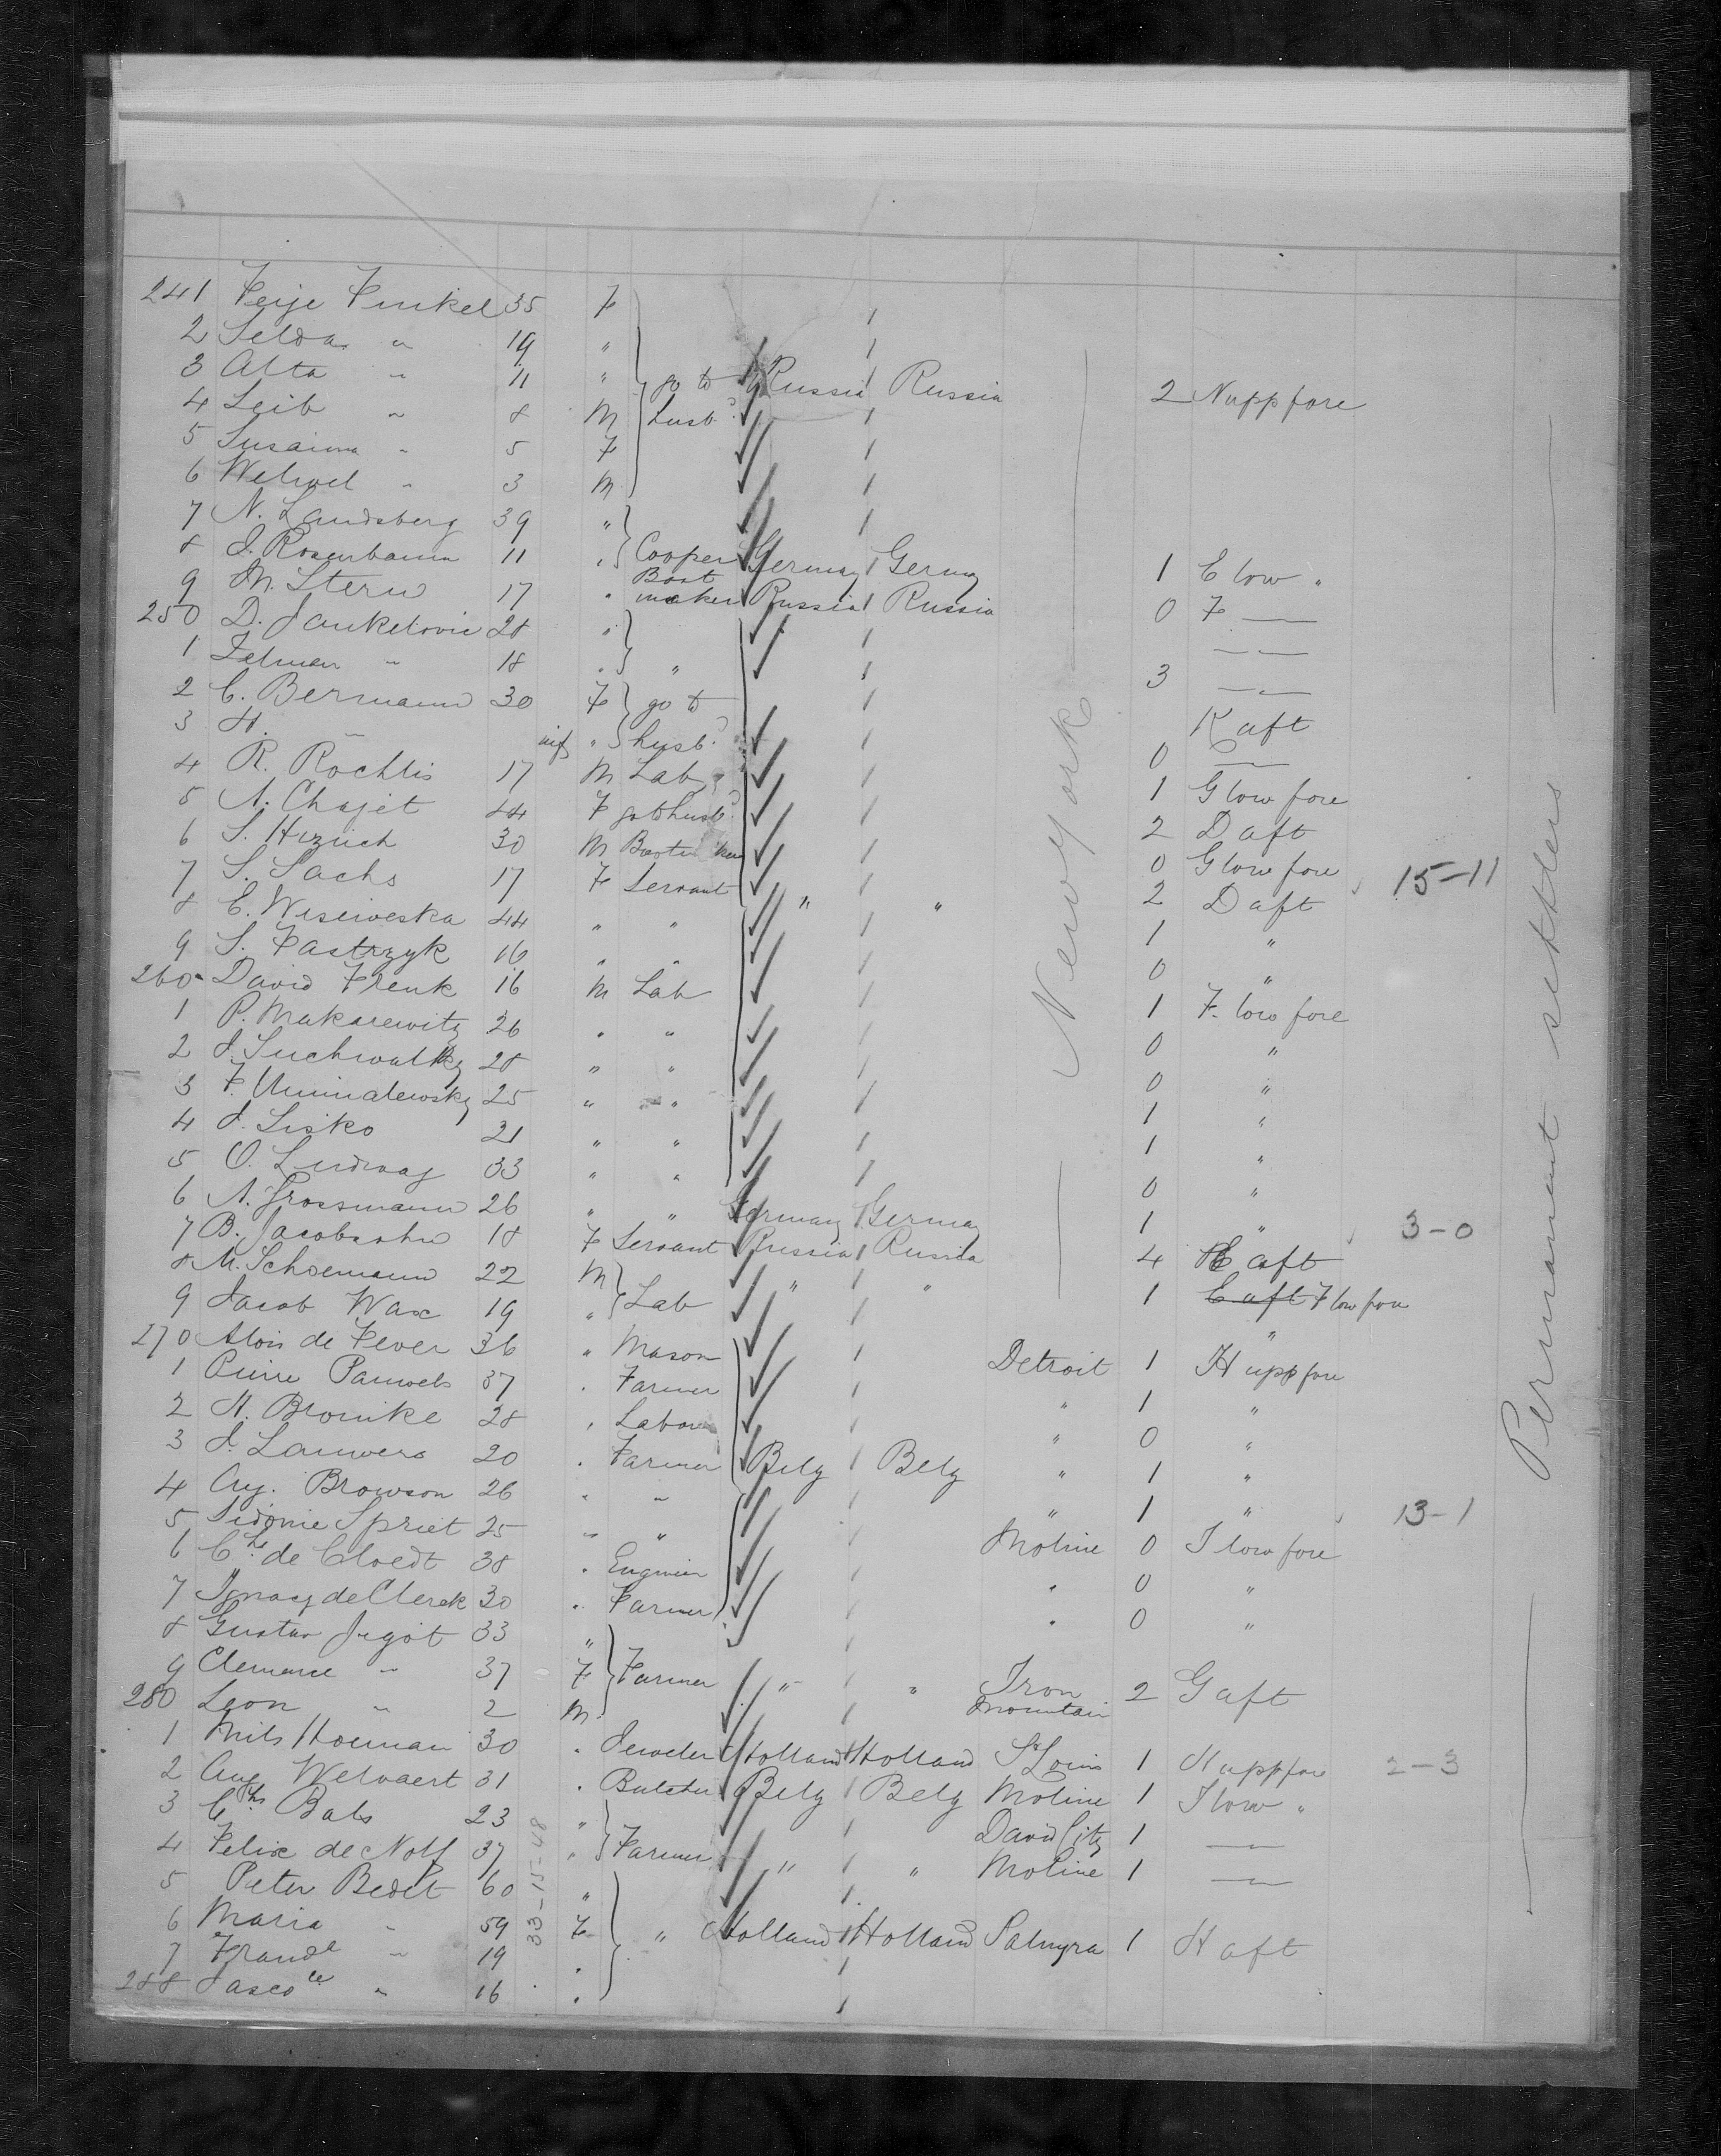 241 Feije Finkel 35 F
2 Selda " 19 "
3 Alta " 11 " go to Russia Russia 2 N upp fore
4 Leib " 8 M husb.d
5 Susanna " 5 F
6 Welwel " 3 M
7 N. Landsberg 39 "
8 J. Rosenbaum 11 " Cooper Germany Germy 1 E low "
9 M. Stern 17 " Boot maker Russia Russia 0 F —
250 D. Jankelovic 28 " — " —
1 Zelman " 18 " " 3 — " —
2 C. Bermann 30 F go to
3 H. — inf " husb.d K aft
4 R. Rochlis 17 M Lab 0 — " —
5 N. Chajet 44 F go to husb.d 1 G low fore
6 S. Hirzich 30 M 2 D aft
7 S. Sachs 17 F Servant " " 0 G low fore 15-11
8 C. Wiseweska 44 " " 2 D aft
9 S. Pastrzyk 16 " " 1 "
260 David Frenk 16 M Lab 0 "
1 P. Makarewitz 26 " " 1 F. low fore
2 J. Suchwalky 28 " " 0 "
3 F. Uminalewsky 25 " " 0 "
4 J. Lisko 21 " " 1 "
5 O. Ludwag 33 " " 1 "
6 A. Grossmann 26 " " Germany Germay 0 "
7 B. Jacobsohn 18 F Servant Russia Russia 1 " 3-0
8 M. Schoemann 22 M " " 4 E aft
9 Jacob Wax 19 " Lab 1 E aft F low fore
New York
270 Alois de Fever 36 " Mason "
1 Pierre Pauwels 37 " Farmer Detroit 1 H upp fore
2 H. Bronike 28 " Labour " 1 "
3 J. Lauwers 20 " Farmer Belg Belg " 0 "
4 Aug. Browson 26 " " " 1 "
5 Sidonie Spriet 25 " " " 1 " 13-1
6 Chs de Cloedt 38 " Engineer Moline 0 I low fore
7 Ignacy de Clerck 30 " Farmer " 0 "
8 Gustav Jigot 33 " " 0 "
9 Clemence " 37 F Farmer " " Iron Mountain 2 G aft
280 Leon " 2 M
1 Nils Houman 30 " Jeweler Holland Holland St Louis 1 H upp fore 2-3
2 Aug Welvaert 31 " Butcher Belg Belg Moline 1 I low "
3 Chs Bals 23 " David City 1 — " —
4 Felix de Nolf 37 " Farmer " " Moline 1 — " —
5 Peter Bedet 60 "
6 Maria " 59 F " Holland Holland Palmyra 1 H aft
7 " 19 "
288 " 16 "
33-15-48
Permanent settlers